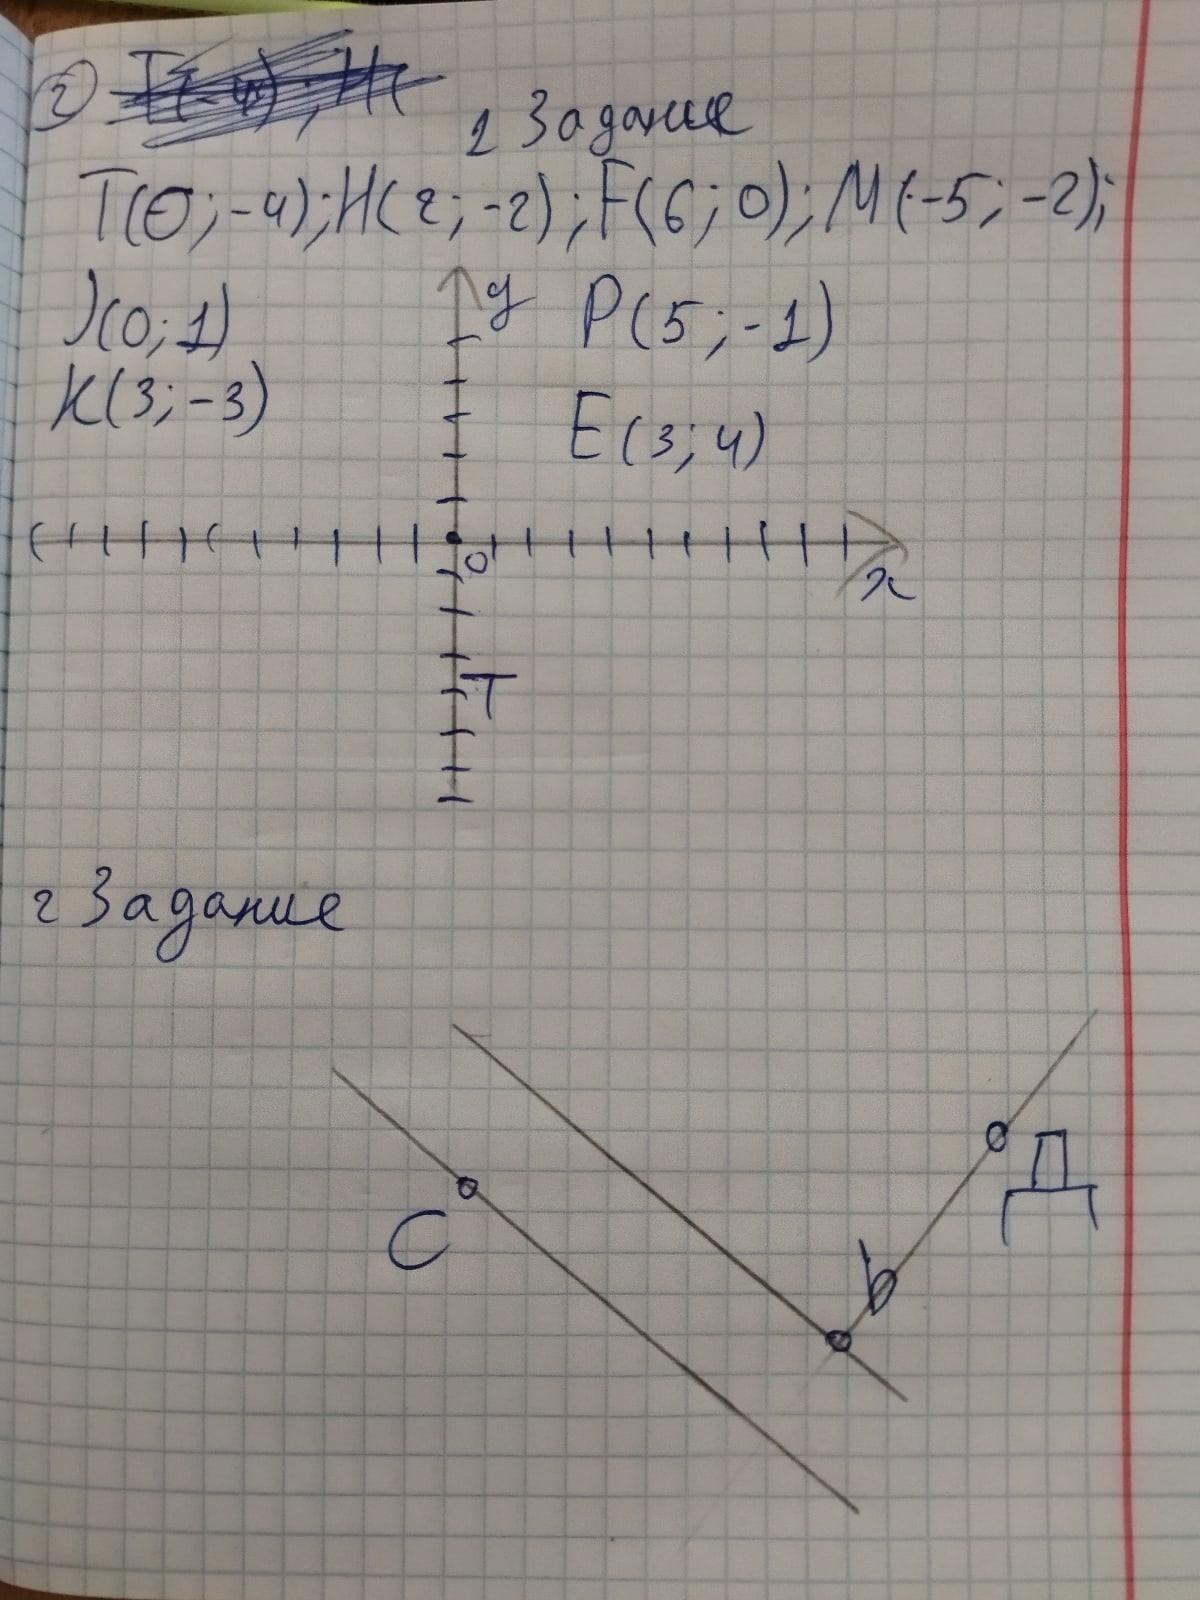 ②
1 Задание
T(0;-4);H(2;-2);F(6;0);M(-5;-2);
J(0;1)
K(3;-3)
y
P(5;-1)
E(3;4)
0
x
T
2 Задание
C
b
Д